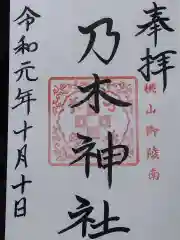 奉拝
桃山御陵南
乃木神社
令和元年十月十日